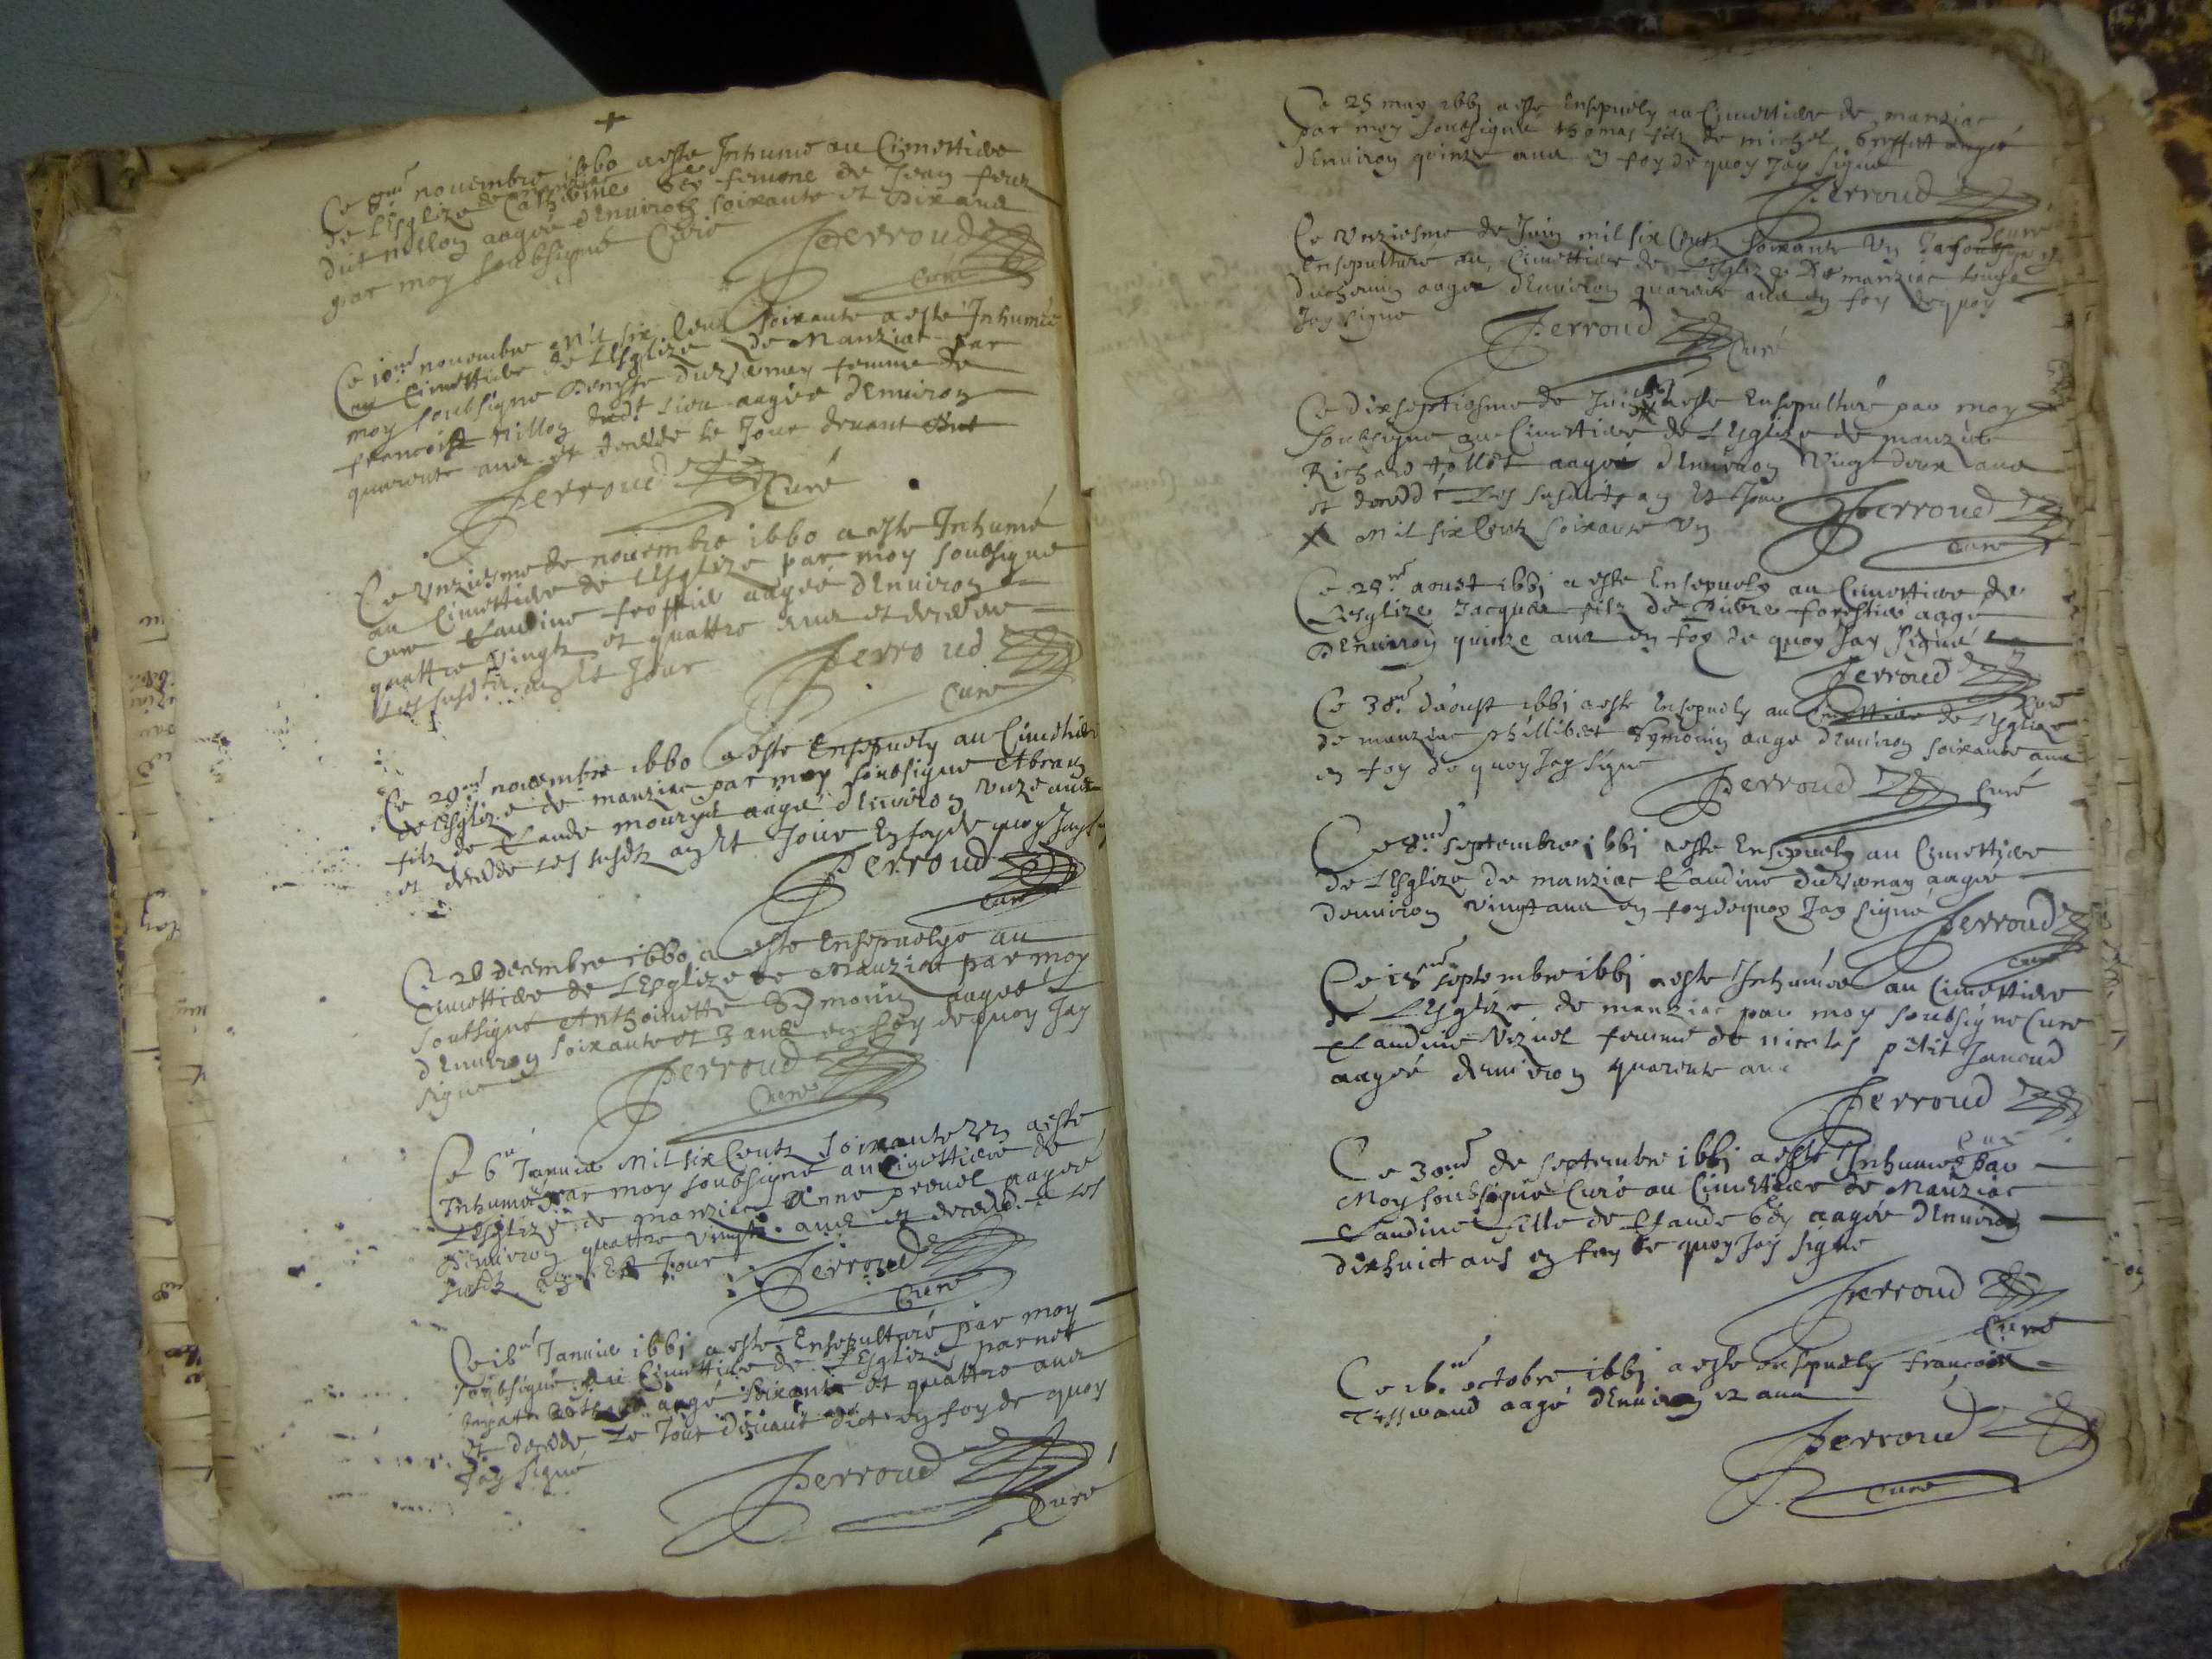 Ce 8me novembre 1660 a esté Inhumé au Cimettiere
de LEsglize de Catherine femme de Jean
dit nillon aagée dEnviron soixante et Dix ans
par moy soubsigné Curé
Perroud
Curé
Ce 10me novembre Mil six Centz soixante a esté Inhumée
au Cimettiere de LEsglize de Manziat par
moy soubsigné Denyse Duvernay femme de
francois Nillon dudt lieu aagée dEnviron
quarente ans et decedde le Jour devant dict
Perroud Curé
Ce Unziesme de novembre 1660 a esté Inhumé
au Cimettiere de LEsglize par moy soubsigné
Curé Claudine aagée dEnviron
quattre vingtz et quattre ans et decedee
Les susdts an et Jour
Perroud
Curé
Ce 29me novembre 1660 a esté Ensepuely au Cimettiere
de LEsglize de manziac par moy soubsigné Abram
filz de Claude aagé dEnviron unze ans
et decedde Les susdtz an et Jour En foy de quoy Jay
Perroud
Curé
Ce 26 decembre 1660 a esté Ensepuelye au
Cimettiere de LEsglize de Manziat par moy
soubsigné Anthoinette Symonin aagée
dEnviron soixante et 3 ans en foy de quoy Jay
signé
Perroud
Curé
Ce 6e Janvier Mil six Centz soixante Un a esté
Inhumé par moy soubsigné au Cimettiere de
LEsglize de manziac Anne aagée
dEnviron quattre vingtz ans et deceddee Les
susdtz an Et Jour
Perroud
Curé
Ce 16e Janvier 1661 a esté Ensepulturé par moy
soubsigné au Cimettiere de LEsglize
aagé soixante et quattre ans
et decedde Le Jour devant dict en foy de quoy
Jay signé
Perroud
Curé
Ce 25 may 1661 a esté Ensepuely au Cimettiere de manziac
par moy soubsigné thomas filz de michel aagé
dEnviron quinze ans en foy de quoy Jay signé
Perroud
Curé
Ce Unziesme de Juin mil six Centz soixante Un
Ensepulturé au Cimettiere de LEsglize De manziac
aagée dEnviron quarente ans en foy de quoy
Jay signé
Perroud Curé
Ce Dixseptiesme de Juin a esté Ensepulturé par moy
soubsigné au Cimettiere de LEsglize de manziac
Richard tollot aagé dEnviron Vingt deux ans
et decedde Les susdits an Et Jour
X Mil six Centz soixante Un Perroud
Curé
Ce 29me aoust 1661 a esté Ensepuely au Cimettiere de
LEsglize Jacques filz de forestier aagé
DEnviron quinze ans en foy de quoy Jay signé
Perroud
Curé
Ce 30me daoust 1661 a esté Ensepuely au Cimettiere de LEsglize
de manziac phillibert Symonin aagé dEnviron soixante ans
en foy de quoy Jay signé
Perroud Curé
Ce 8me septembre 1661 a esté Ensepuely au Cimettiere
de LEsglize de manziac Claudine duvernay aagée
denviron vingt ans en foy de quoy Jay signé
Perroud
Curé
Ce 15me septembre 1661 a esté Inhumée au Cimettiere
de LEsglize de manziac par moy soubsigné Curé
Claudine femme de nicolas petit Janoud
aagée denviron quarente ans
Perroud
Curé
Ce 30me de septembre 1661 a esté Inhumée par
Moy soubsigné Curé au Cimettiere de Manziac
Claudine fille de Claude aagée dEnviron
dixhuict ans en foy de quoy Jay signé
Perroud
Curé
Ce 16me octobre 1661 a esté ensepuely francois
aagé dEnviron 12 ans
Perroud
Curé